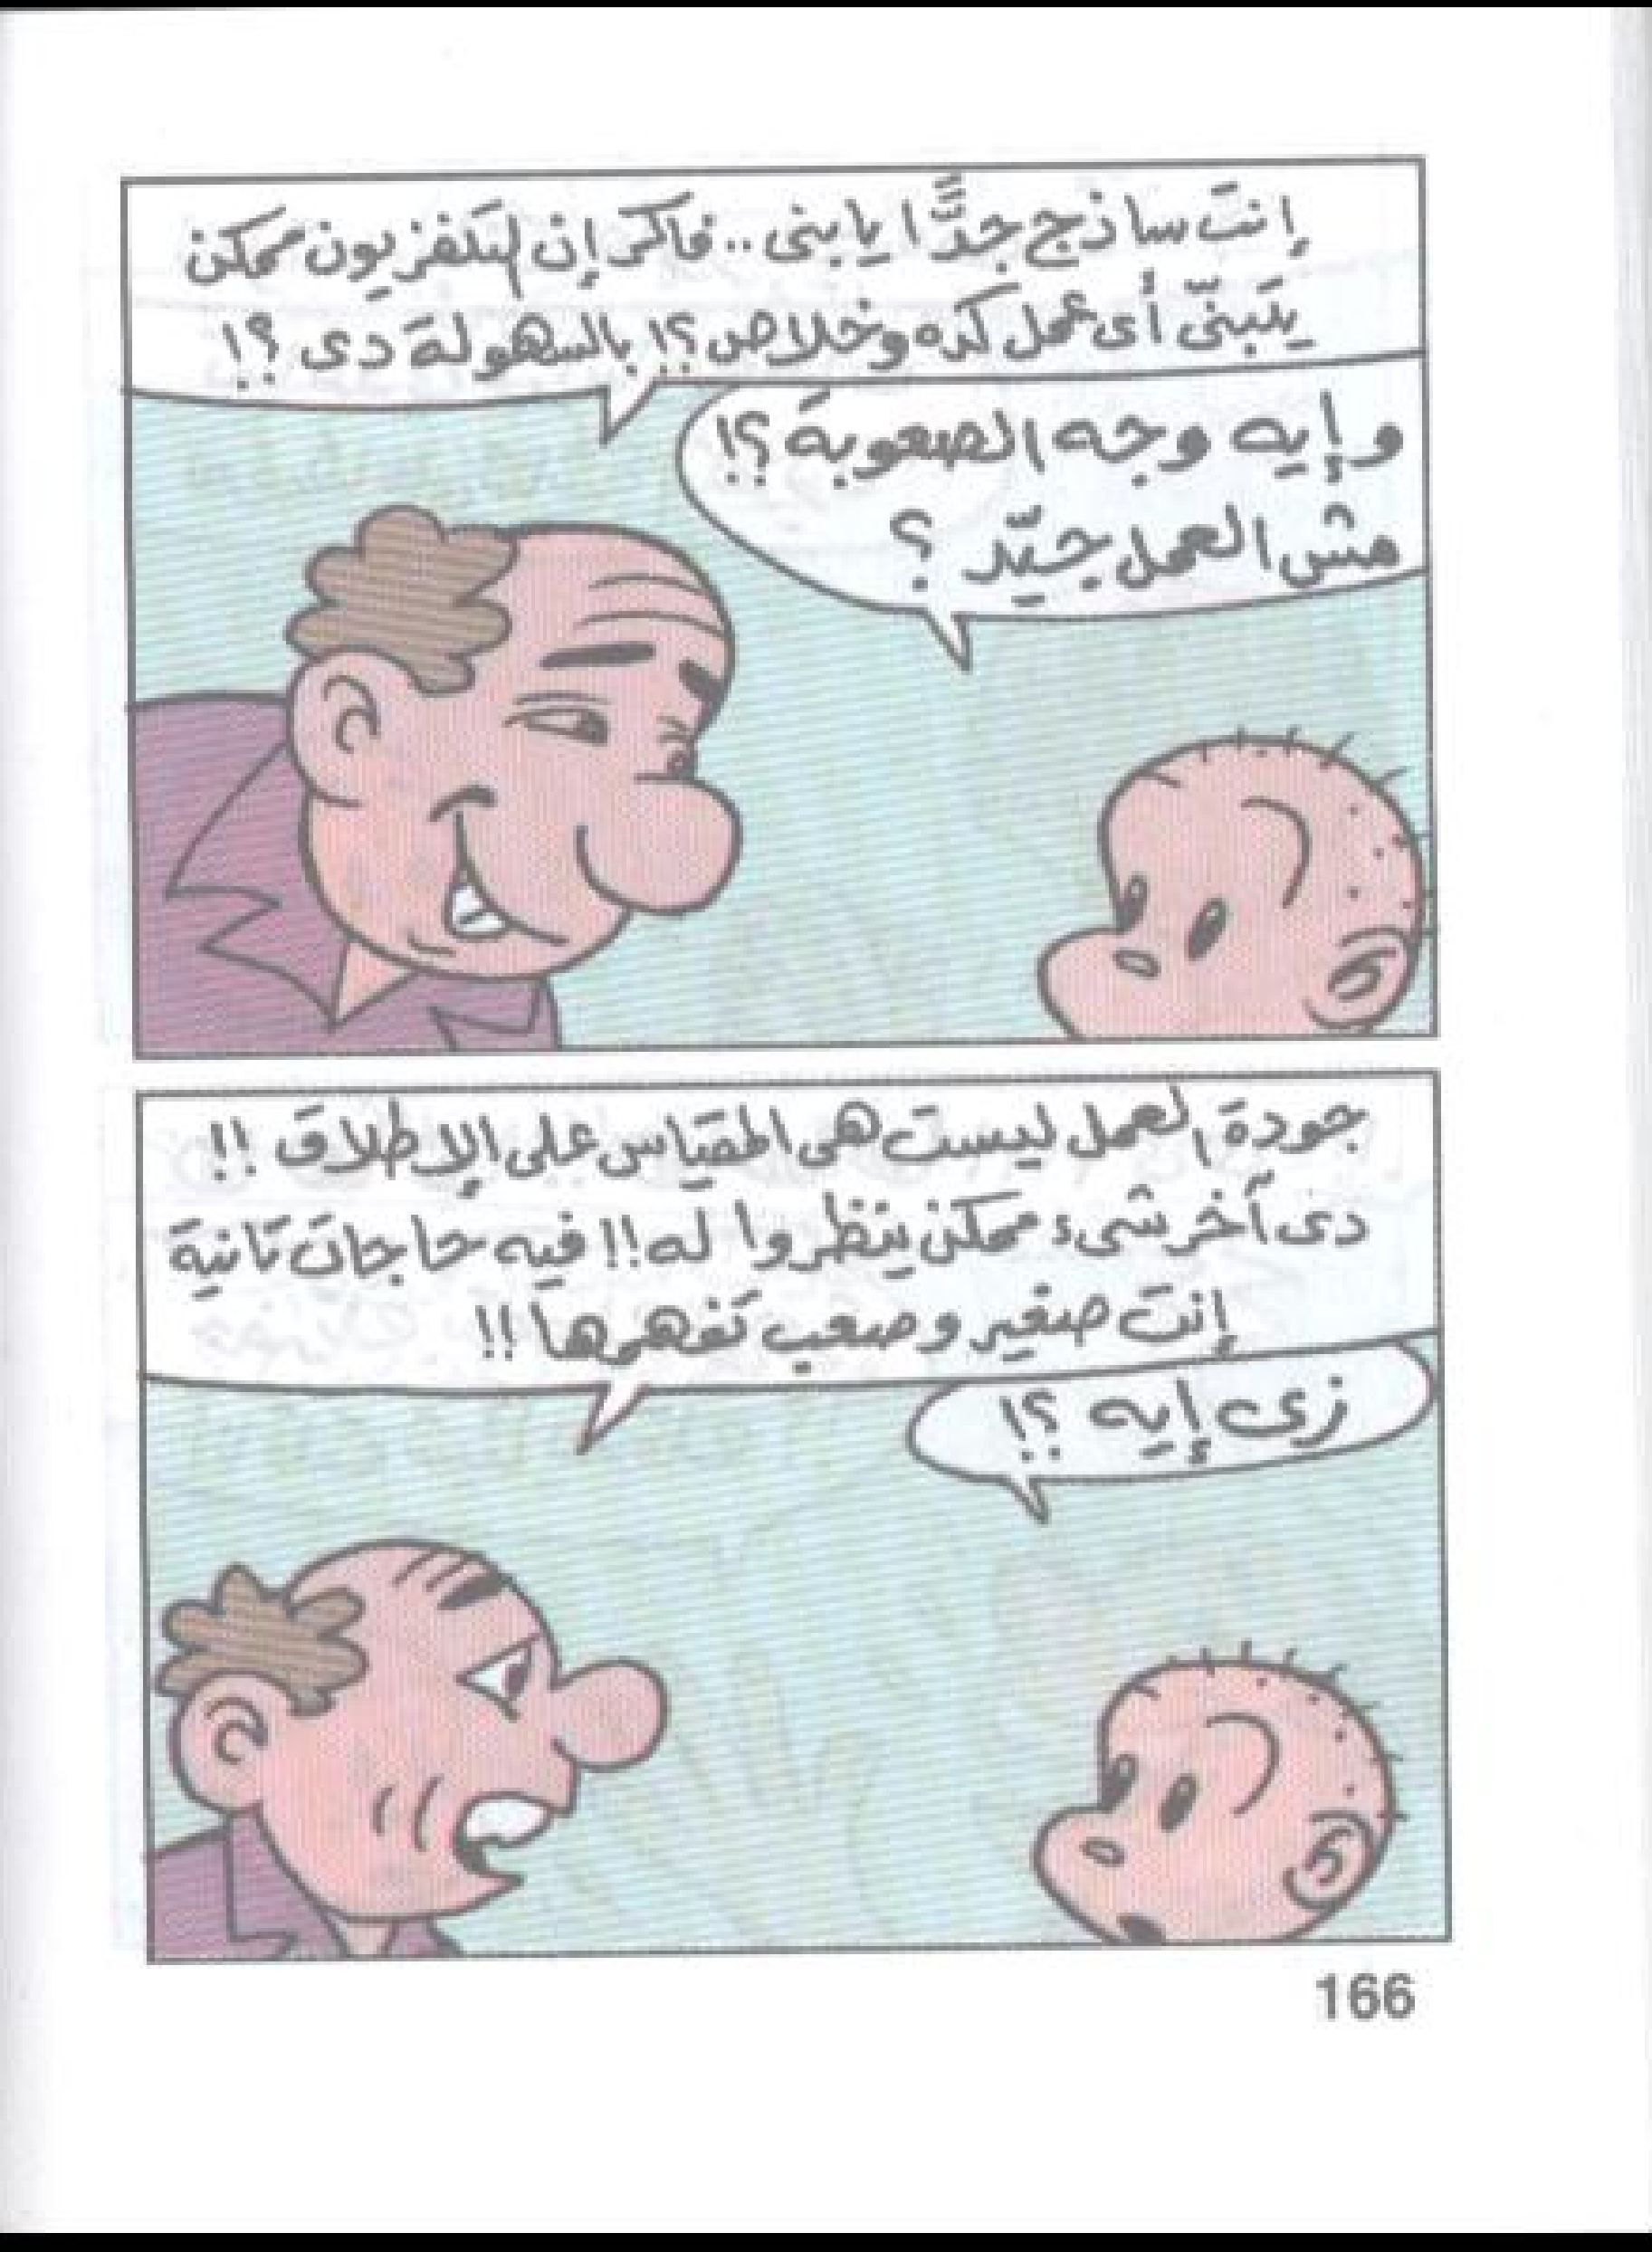 إنتَ ساذج جدًّا يا بنى .. فاكر إن التلفزيون ممكن
يتبنّى أى عمل كده وخلاص؟! بالسهولة دى؟!
وإيه وجه الصعوبة؟!
مش العمل جيّد؟
جودة العمل ليست هى المقياس على الإطلاق!!
دى آخر شىء ممكن ينظروا له!! فيه حاجات تانية
إنت صغير وصعب تفهمها!!
زى إيه؟!
166